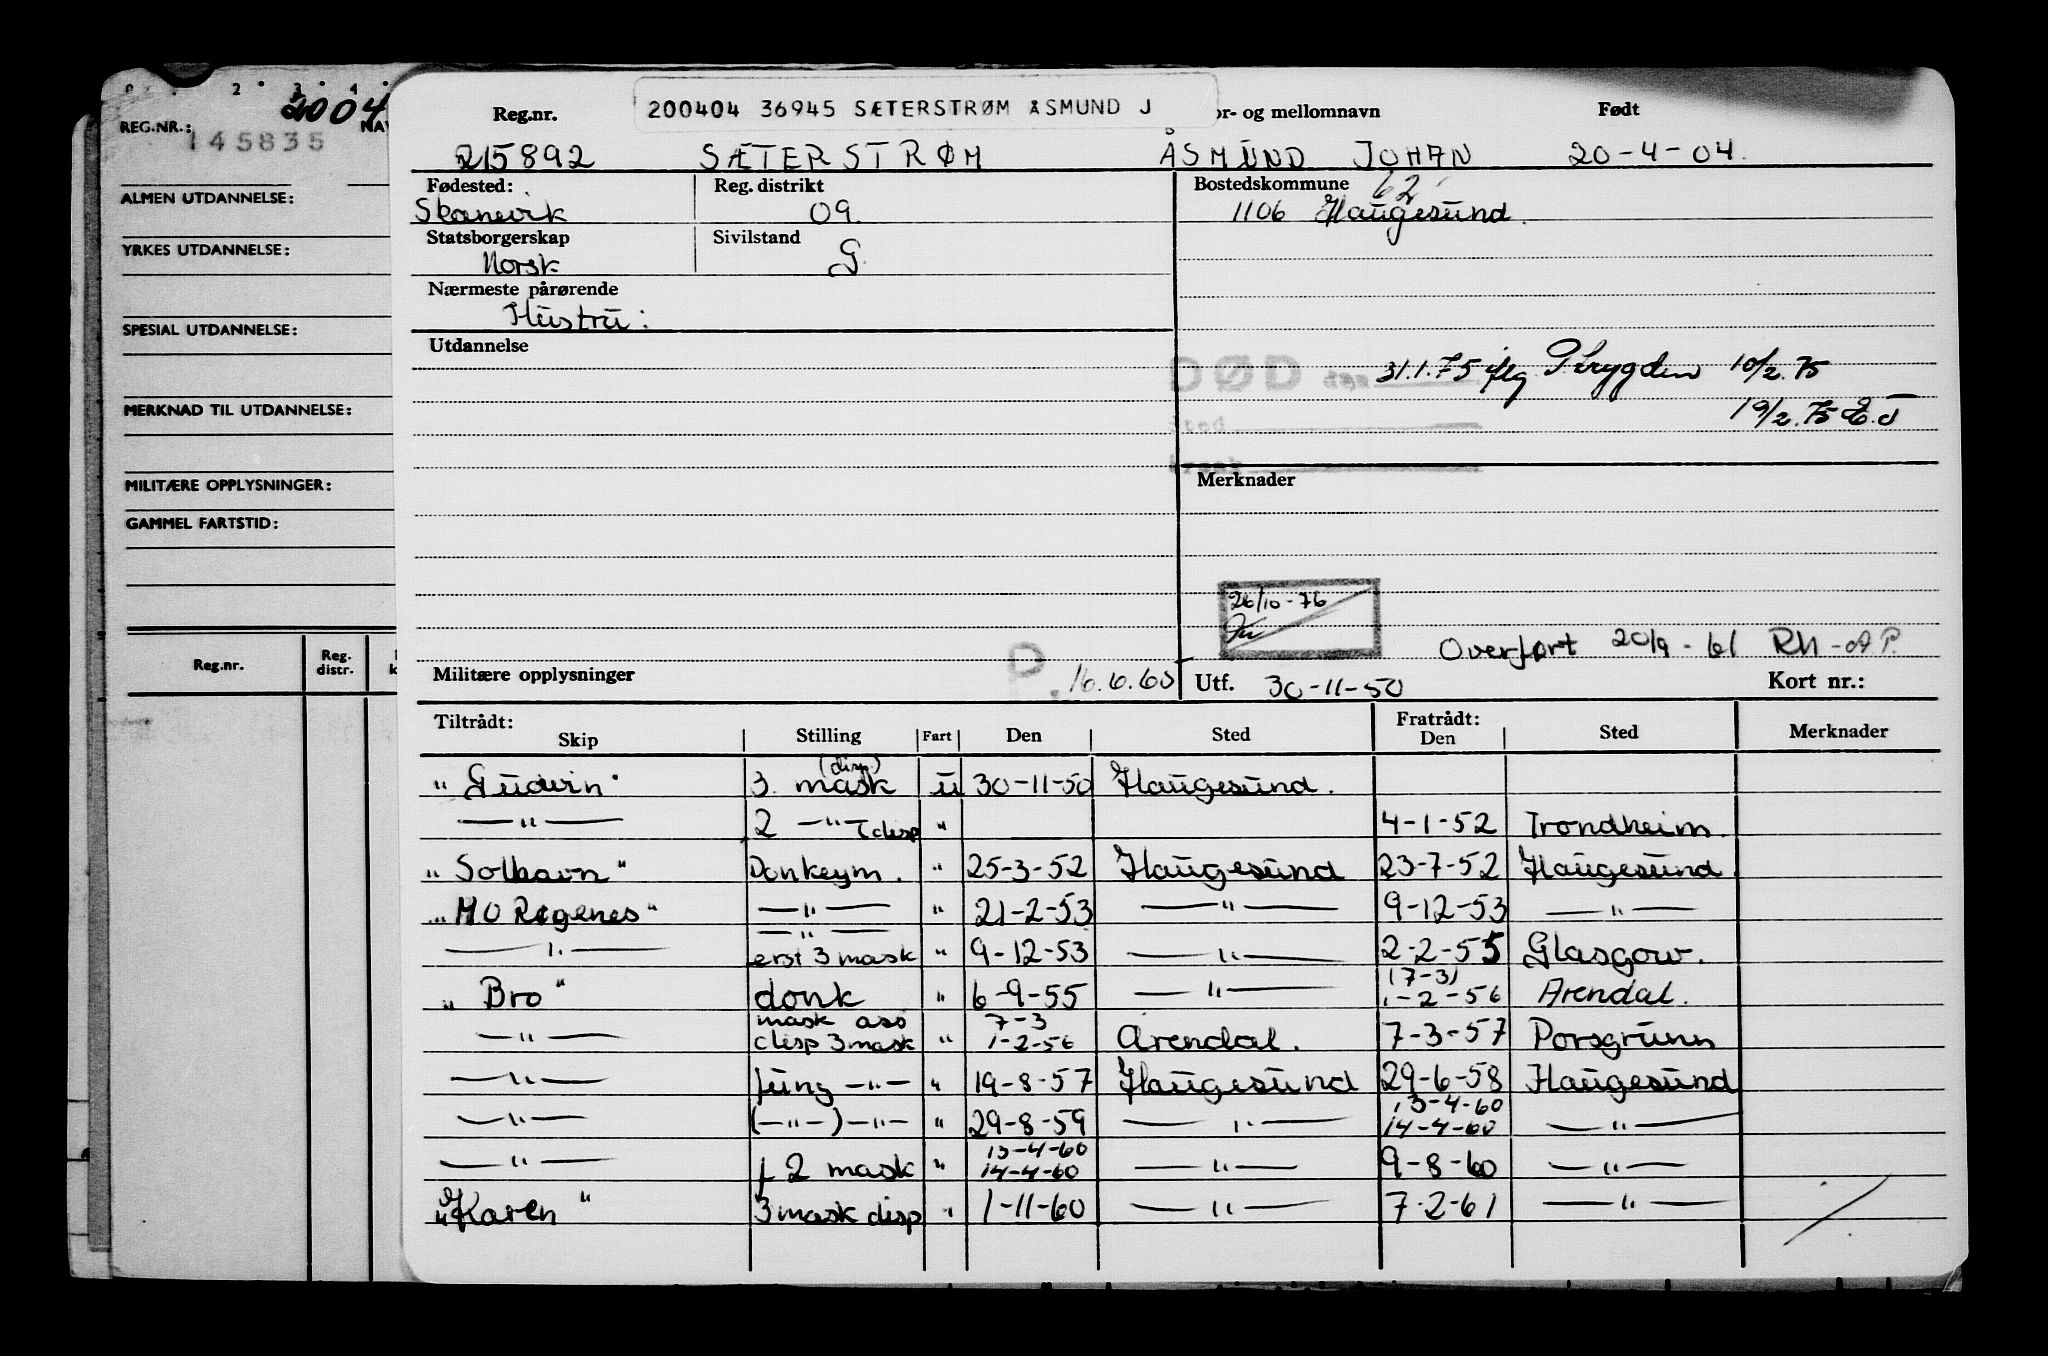 0 . 2 . 3 . 4
2004
REG.NR.: NAV
145835
ALMEN UTDANNELSE:
YRKES UTDANNELSE:
SPESIAL UTDANNELSE:
MERKNAD TIL UTDANNELSE:
MILITÆRE OPPLYSNINGER:
GAMMEL FARTSTID:
Reg.nr. Reg. distr. k
Reg.nr. 200404 36945 SÆTERSTRØM ÅSMUND J or- og mellomnavn Født
215892 SÆTERSTRØM ÅSMUND JOHAN 20-4-04.
Fødested: Reg. distrikt Bostedskommune 62
Skånevik 09. 1106 Haugesund.
Statsborgerskap Sivilstand
Norsk G
Nærmeste pårørende
Hustru:
Utdannelse
DØD den 31.1.75 iflg P trygden 10/2.75
Sted 19/2.75 E.J
Merknader
26/10-76
Overført 20/9-61 Rh-AP.
Militære opplysninger P. 16.6.60 Utf. 30-11-50 Kort nr.:
Tiltrådt: Fratrådt:
Skip Stilling Fart Den Sted Den Sted Merknader
"Gudvin" 3. mask (disp.) u 30-11-50 Haugesund.
—"— 2 —"— (disp " 4-1-52 Trondheim.
"Solhavn" Donkeym. " 25-3-52 Haugesund 23-7-52 Haugesund
"H O Rogenes" —"— " 21-2-53 —"— 9-12-53 —"—
—"— —"— erst 3 mask " 9-12-53 —"— 2-2-55 Glasgow.
"Bro" donk " 6-9-55 —"— (7-3) 1-2-56 Arendal.
—"— mask ass disp 3 mask " 7-3 1-2-56 Arendal. 7-3-57 Porsgrunn
—"— fung —"— " 19-8-57 Haugesund 29-6-58 Haugesund
—"— (—"—) —"— " 29-8-59 —"— 13-4-60 14-4-60 —"—
—"— f 2 mask " 13-4-60 14-4-60 —"— 9-8-60 —"—
"Karen" 3 mask disp " 1-11-60 —"— 7-2-61 —"—